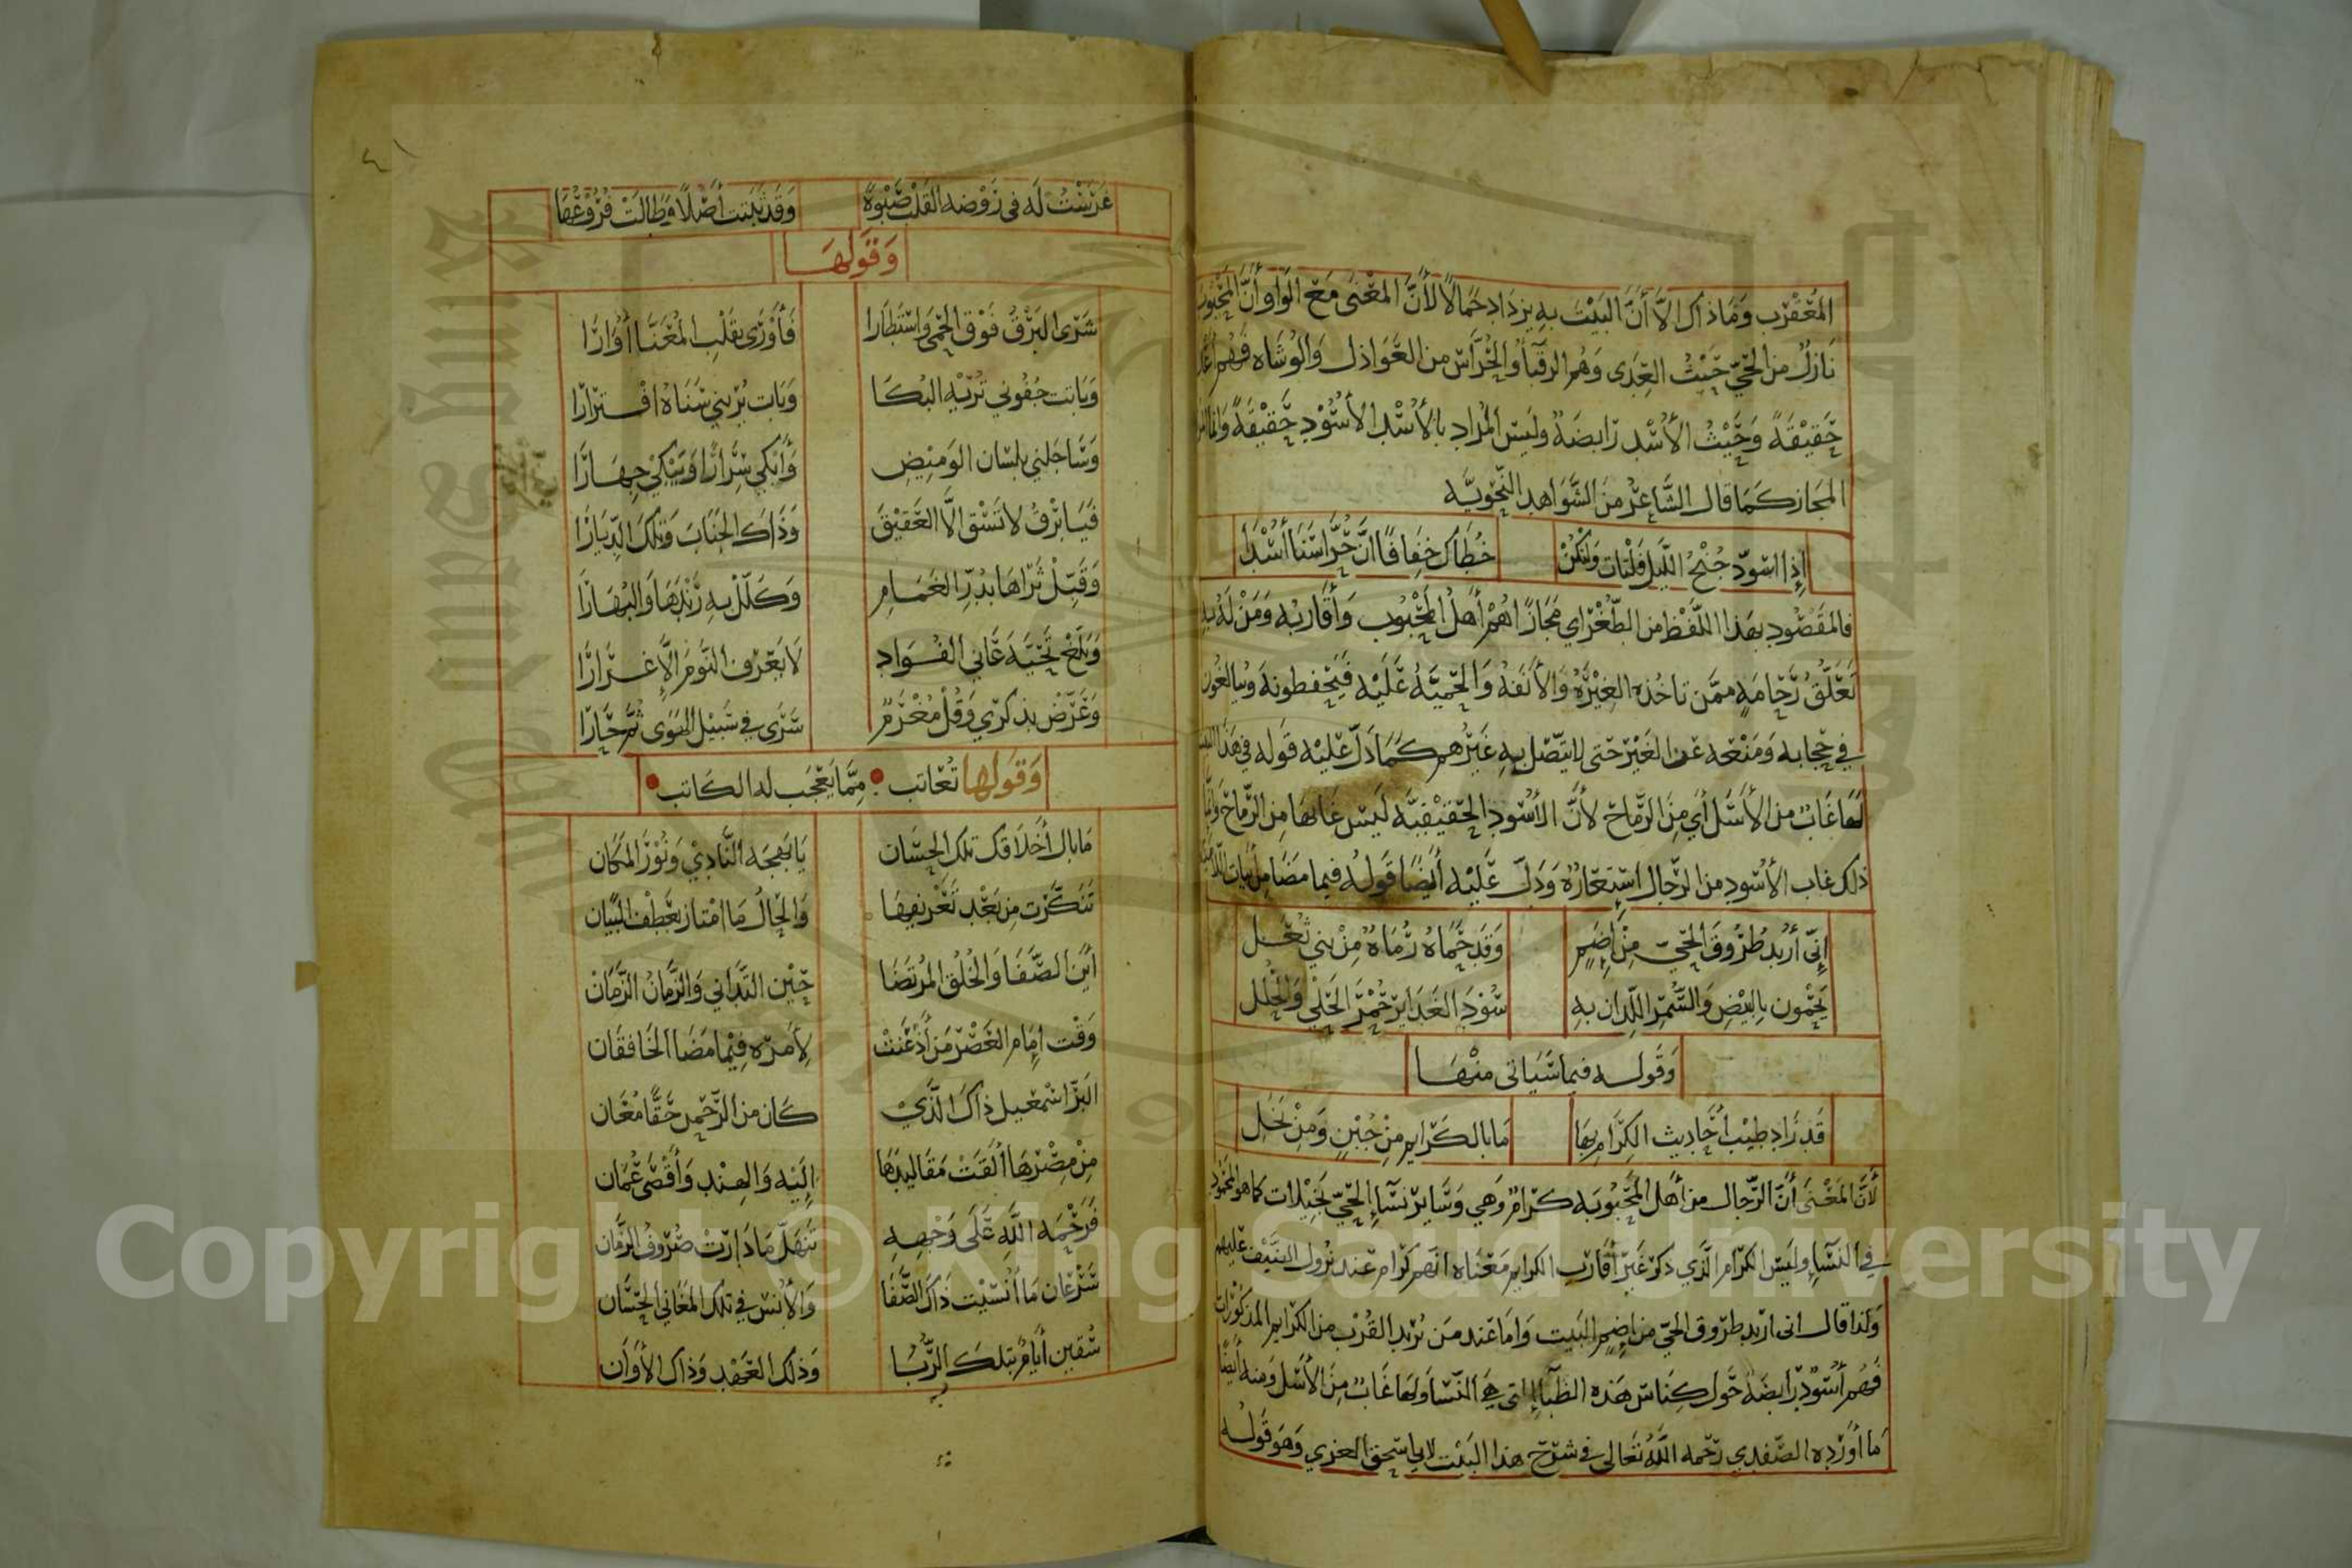 المعقرب وما ذاك الا أن البيت به يزداد جمالا لأن المعنى مع الواو أن المحبوب
نازل من الحي حيث العدى وهم الرقبا والحراس من العواذل والوشاه فهم
حقيقة وحيث الأسد رابضة وليس المراد بالأسد الأسود حقيقة وانما
المجاز كما قال الشاعر من الشواهد النحويه
إذا اسود جنح الليل فلتات ولتكن خطاك خفافا ان حراسنا أسدا
فالمقصود بهذا اللفظ من الطغراي مجازا هم أهل المحبوب وأقاربه ومن له به
تعلق رحامه ممن تاخذه الغيره والأنفة والحمية عليه فيحفظونه ويبالغون
في حجابه ومنعه عن الغير حتى لا يتصل به غيرهم كما دل عليه قوله في هذا
لها غاب من الأسل أي من الرماح لأن الأسود الحقيقيه ليس غابها من الرماح وانما
ذلك غاب الأسود من الرجال استعارة ودل عليه أيضا قوله فيما مضا من أبيات
إني أريد طروق الحي من إضم وقد حماه رماة من بني ثعل
يحمون بالبيض والسمر اللدان به سود الغداير حمر الحلي والحلل
وقوله فيما سياتى منها
قد زاد طيب أحاديث الكرام بها ما بالكرايم من جبن ومن بخل
لأن المعنى أن الرجال من أهل المحبوبه كرام وهي وساير نسآء الحي بخيلات كما هو المحمود
في النسآء وليس الكرام الذي ذكر غير أقارب الكرايم معناه انهم كرام عند نزول الضيف عليهم
ولذا قال انى اريد طروق الحي من إضم البيت واما عند من يريد القرب من الكرايم المذكورات
فهم أسود رابضة حول كناس هذه الظبآء التي هي النسا ولها غاب من الأسل ومنه أيضا
ما أورده الصفدي رحمه الله تعالى في شرح هذا البيت لابي اسحق الغزي وهو قوله
٤١
غرست له في روضه القلب صبوة وقد ثبتت أصلا وطالت فروعها
وقولها
شرى البرق فوق الحمى واستطارا فأورى بقلب المعنا أوارا
وباتت جفوني تريه البكا وبات يريني سناه افترارا
وساجلني بلسان الوميض وأبكي سرارا ويبكي جهارا
فيا برق لا تسق الا العقيق وذاك الجناب وتلك الديارا
وقبل ثراها بدر الغمام وكلل به رندها والبهارا
وبلغ تحية عاني الفواد لا يعرف النوم الا غرارا
وعرض بذكري وقل مغرم سرى في سبيل الهوى ثم حارا
وقولها تعاتب مما يعجب له الكاتب
ما بال أخلاقك تلك الحسان يا بهجه النادي ونور المكان
تنكرت من بعد تعريفها والحال ما امتاز بعطف البيان
أين الصفا والخلق المرتضا حين التداني والزمان الزمان
وقت إمام العصر من أذعنت لأمره فيما مضا الخافقان
البر اسمعيل ذاك الذي كان من الرحمن حقا معان
من مصرها ألقت مقاليدها إليه والهند وأقصى عمان
فرحمه الله على وجهه تنهل ما دارت صروف الزمان
سرعان ما أنسيت ذاك الصفا والأنس في تلك المغاني الحسان
سقين أيام بتلك الربا وذلك العهد وذاك الأوان
Copyright © King Saud University